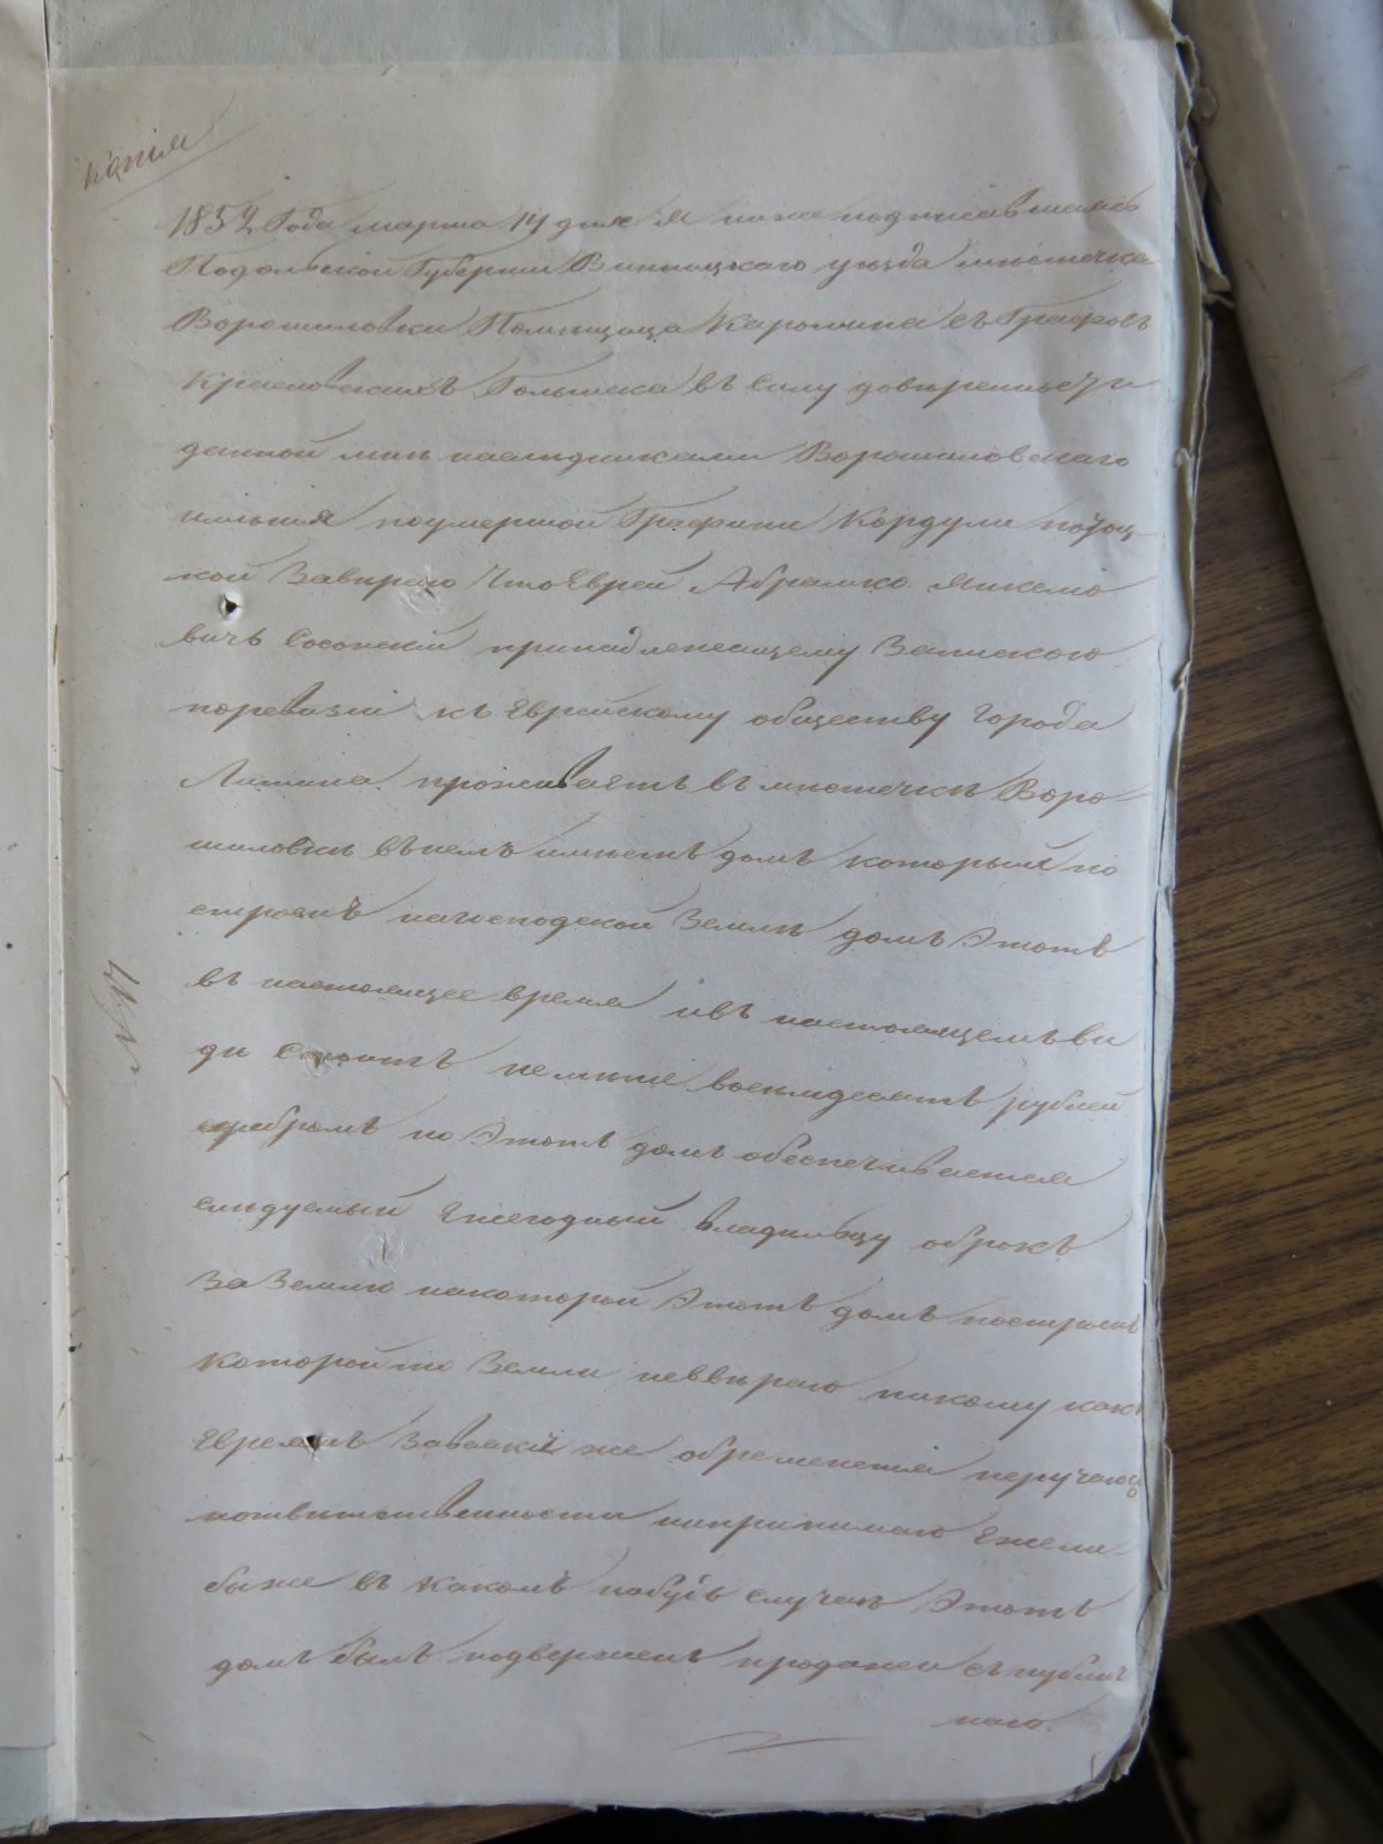 Копія
1852 Года марта 14 дня я ниже подписавшаяся
Подольской Губерніи Винницкаго уѣзда мѣстечка
Ворошиловки Помѣщица Каролина съ Графовъ
Красновскихъ въ силу довѣренности
данной мнѣ наслѣдниками Ворошиловскаго
имѣнія поумершой Графини Кордули Потоц-
кой Завѣряю Что Еврей Абрамко Янкело
вичъ Сосонскій принадлежащему Запискою
поревизіи къ Еврейскому обществу города
Литина проживаетъ въ мѣстечкѣ Воро-
шиловкѣ въ немъ имѣетъ домъ который по
строенъ нагосподской Землѣ домъ Этотъ
въ настоящее время ивъ настоящемъ ви
дѣ Стоитъ немѣнѣе восемдесятъ рублей
серебромъ но Этотъ домъ обеспечивается
слѣдуемый Ежегодный владѣльцу оброкъ
За Землю накоторой Этотъ домъ построенъ
Которой то Земли невверяю никому какъ
Евреямъ Завсякіе же обременетія неручаюсь
иответственности непринимаю Ежели
быже въ какомъ небудь случаѣ Этотъ
домъ былъ подверженъ продажи съ публич
наго.